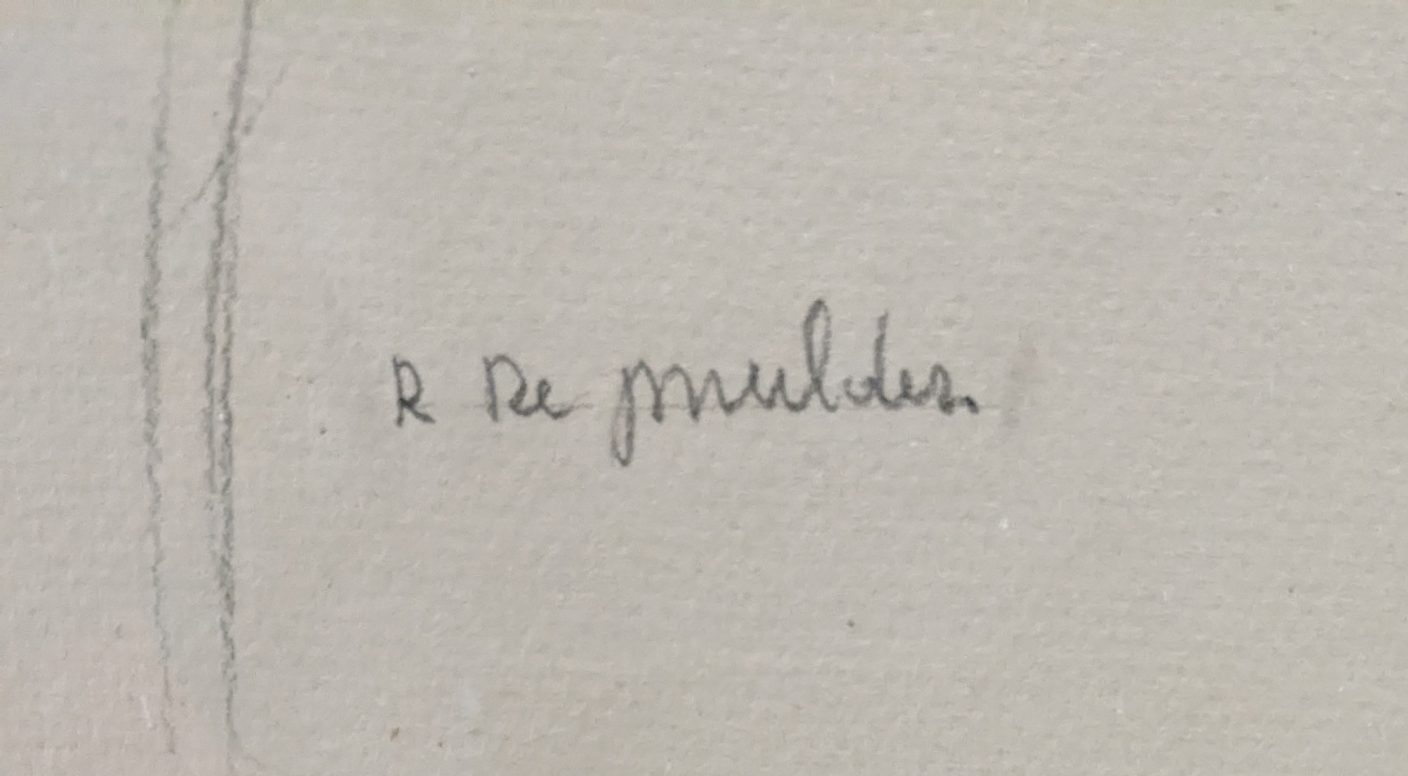 R De mulder.